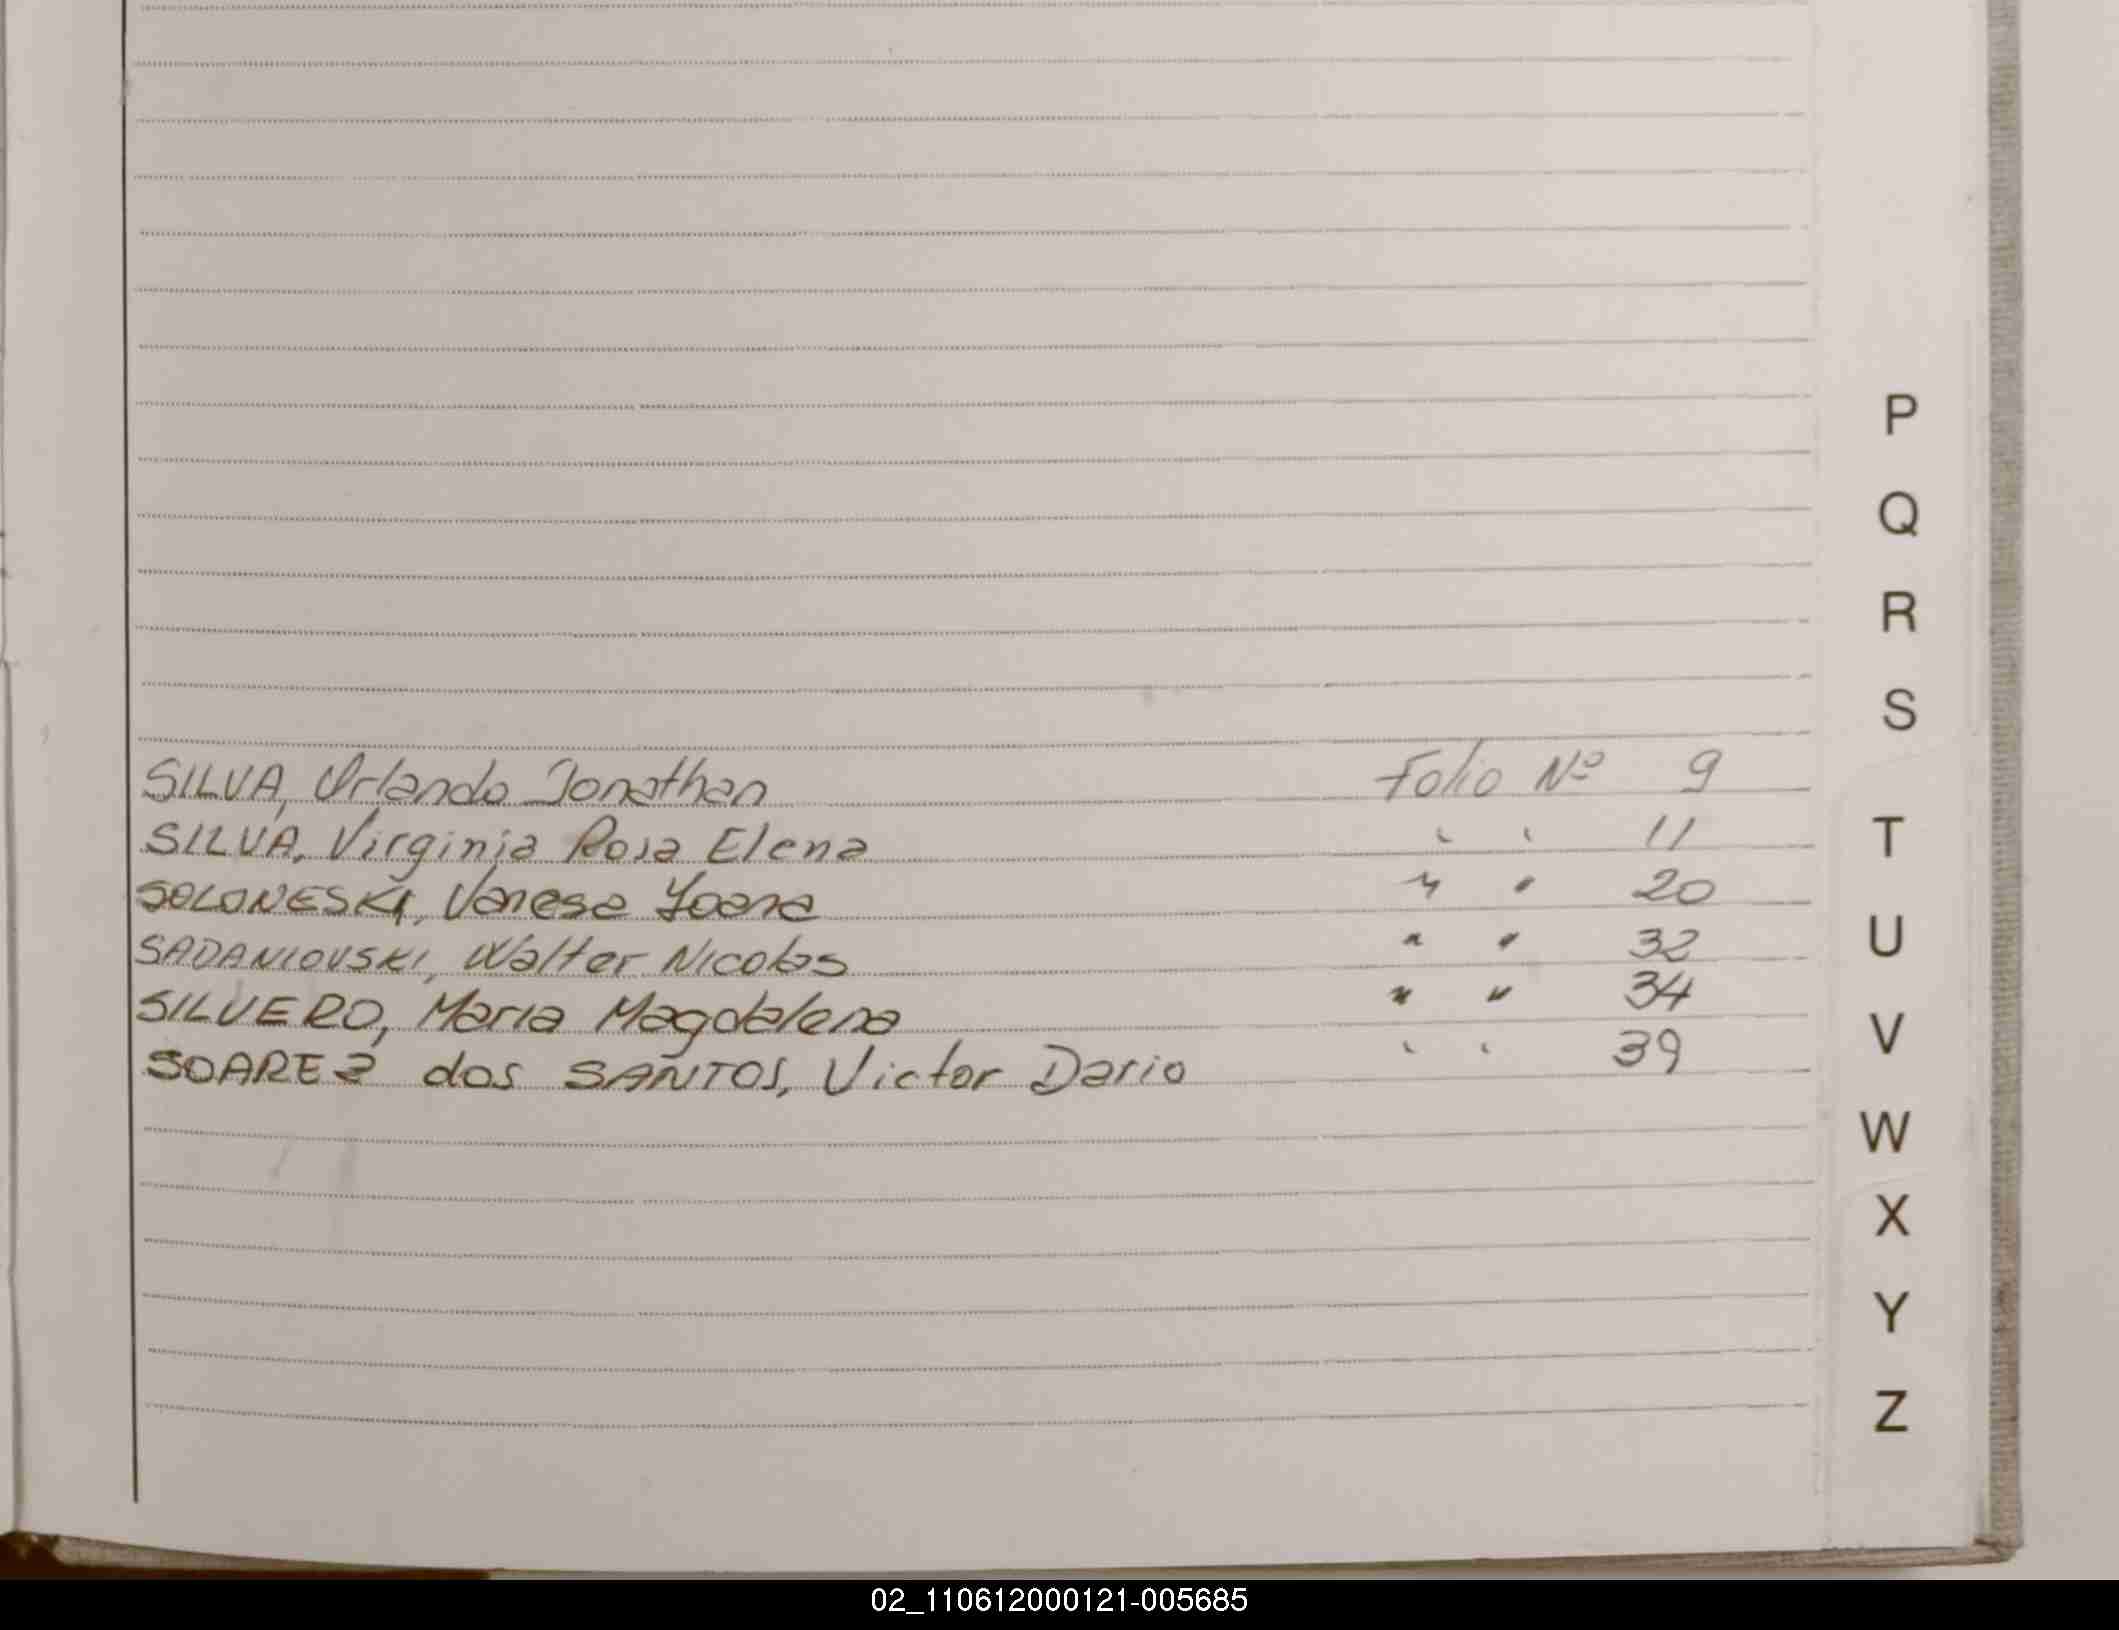 SILVA, Orlando Jonathan Folio Nº 9
SILVA, Virginia Rosa Elena " " 11
SOLONESKI, Vanesa Yoana " " 20
SADANIOVSKI, Walter Nicolas " " 32
SILVERO, Maria Magdalena " " 34
SOAREZ dos SANTOS, Victor Dario " " 39
P
Q
R
S
T
U
V
W
X
Y
Z
02_110612000121-005685